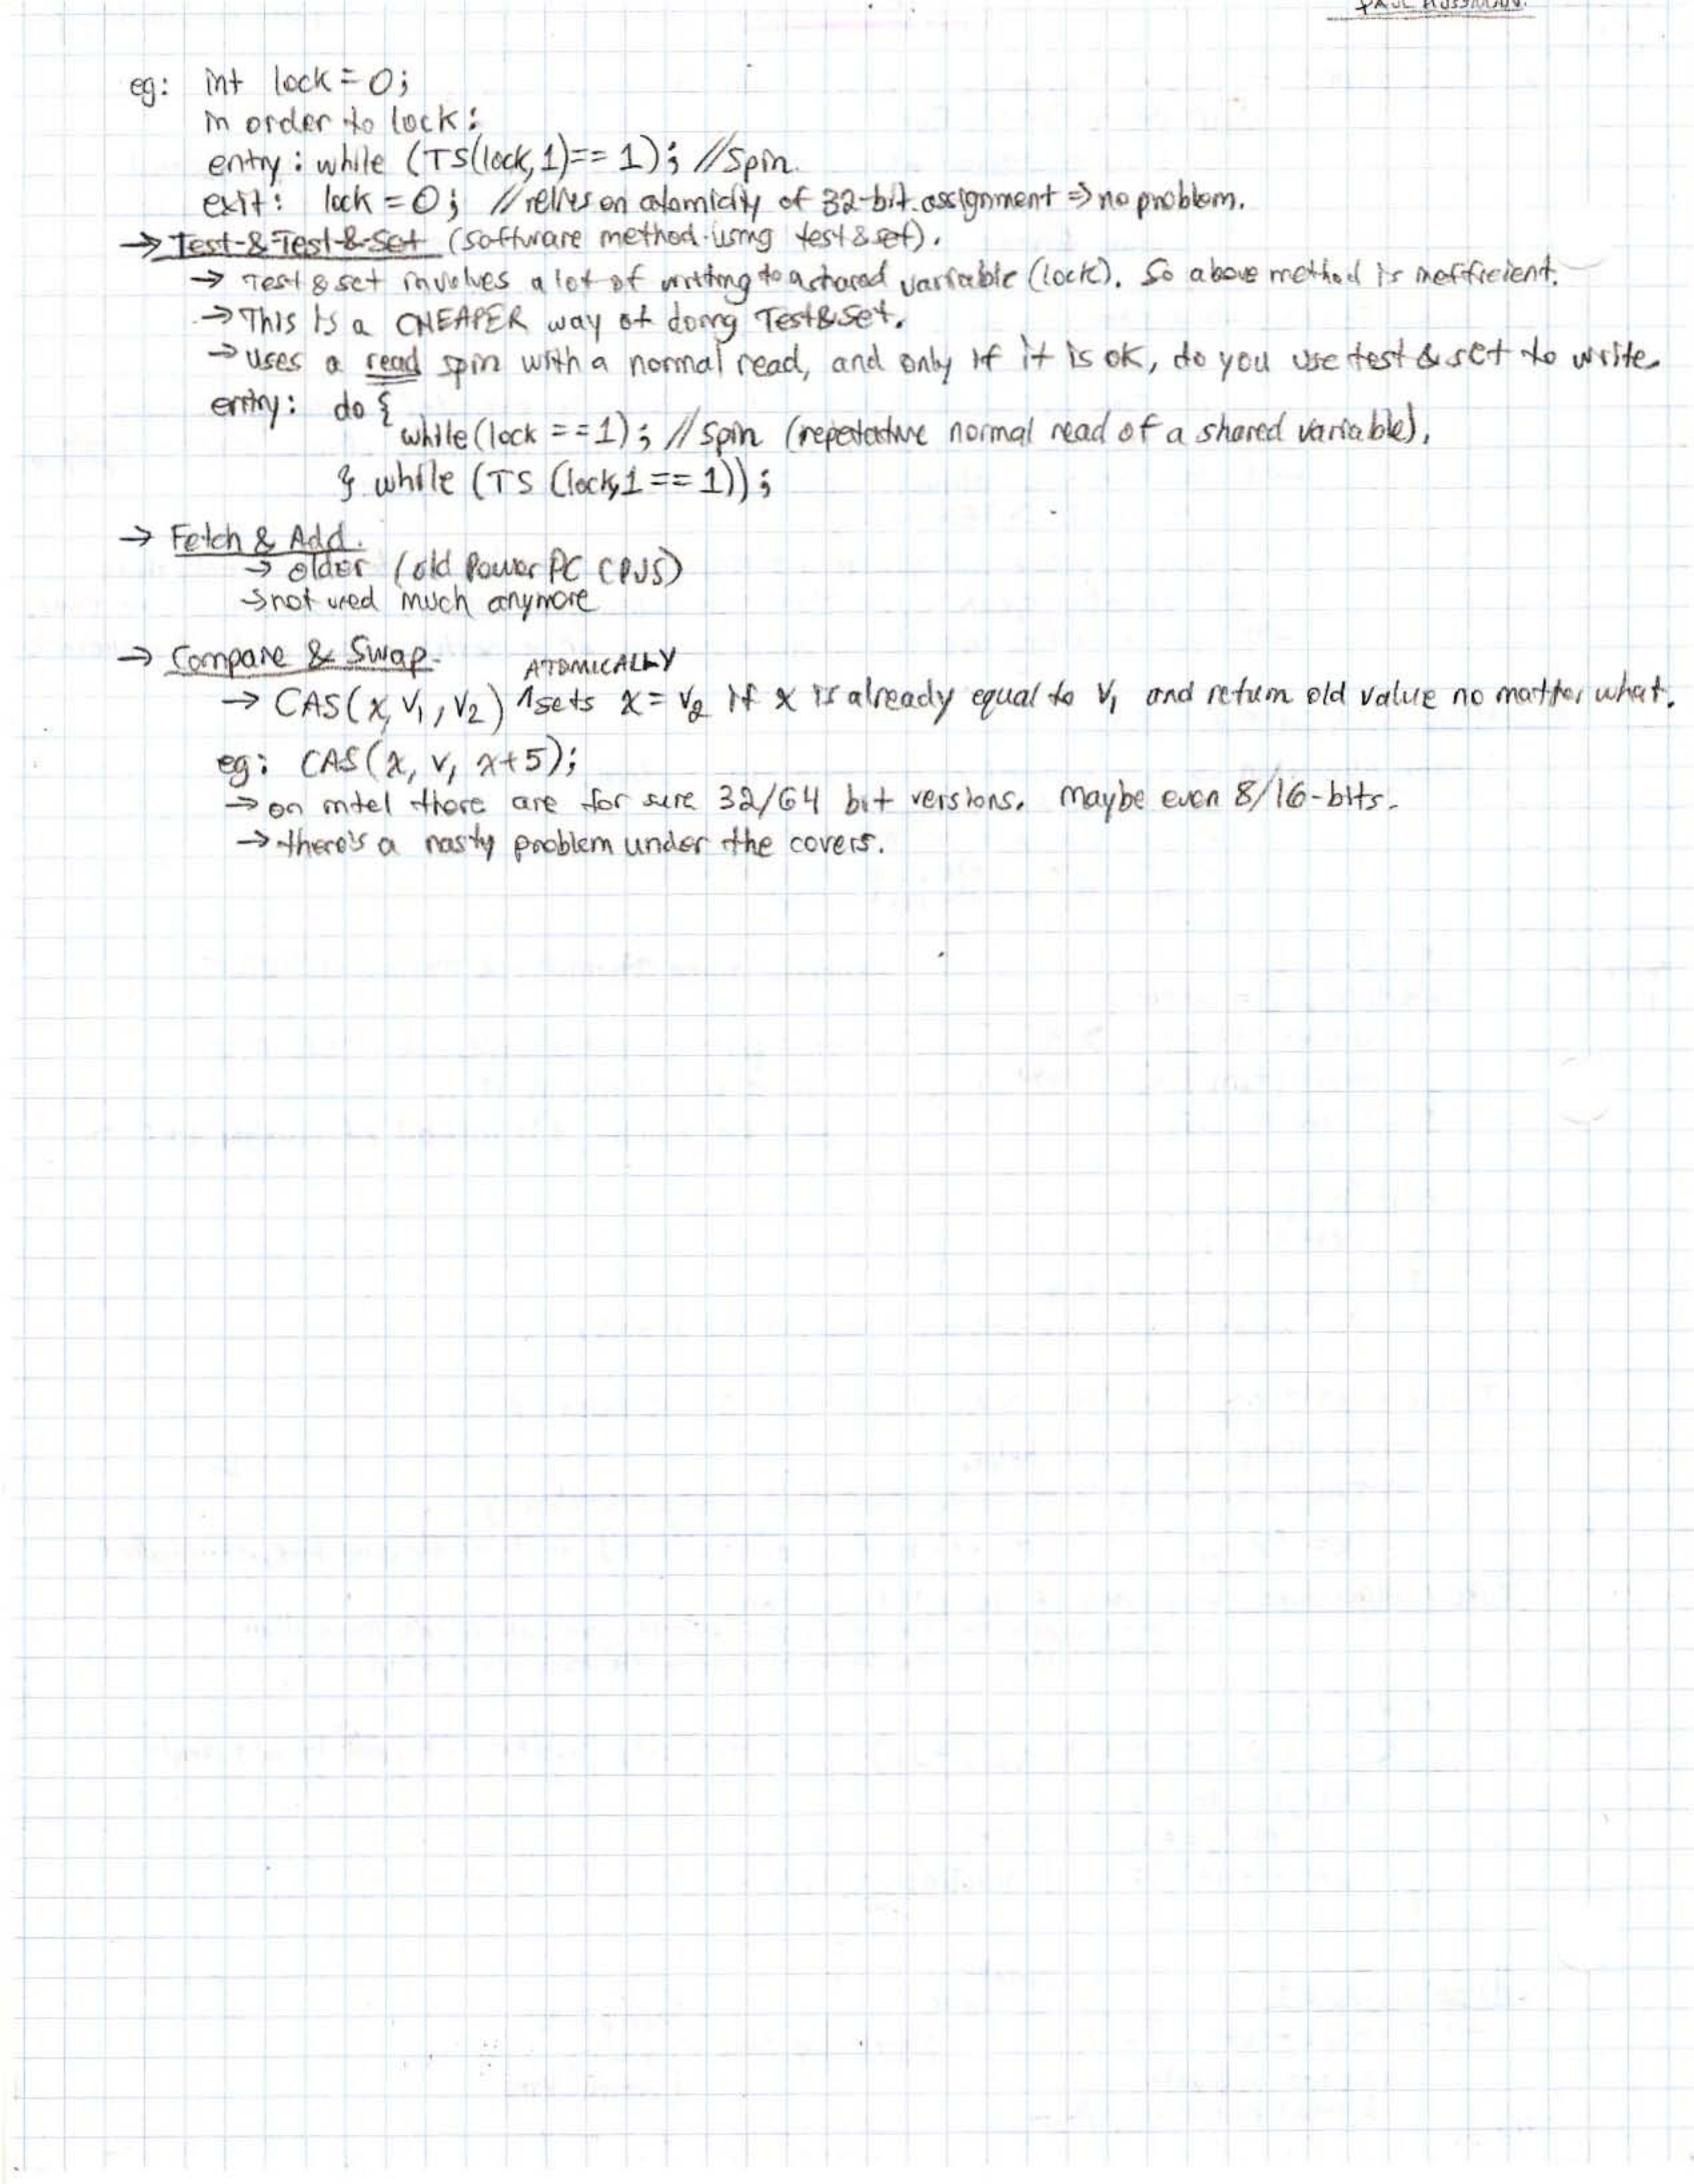 PAUL
eg: int lock = 0;
in order to lock:
entry: while (TS(lock,1)== 1); //spin.
exit: lock = 0; //relies on atomicity of 32-bit assignment ⇒ no problem.
→ Test-&-Test-&-Set (software method using test&set).
→ Test & set involves a lot of writing to a shared variable (lock). So above method is inefficient.
→ This is a CHEAPER way of doing Test&Set.
→ uses a read spin with a normal read, and only if it is ok, do you use test & set to write.
entry: do {
while (lock ==1); //spin (repetative normal read of a shared variable).
} while (TS (lock,1 == 1));
→ Fetch & Add.
→ older (old Power PC CPUs)
→ not used much anymore
→ Compare & Swap.
ATOMICALLY
→ CAS(x, v₁, v₂) ^sets x = v₂ if x is already equal to v₁ and return old value no matter what.
eg: CAS(x, v, x+5);
→ on intel there are for sure 32/64 bit versions. Maybe even 8/16-bits.
→ there's a nasty problem under the covers.